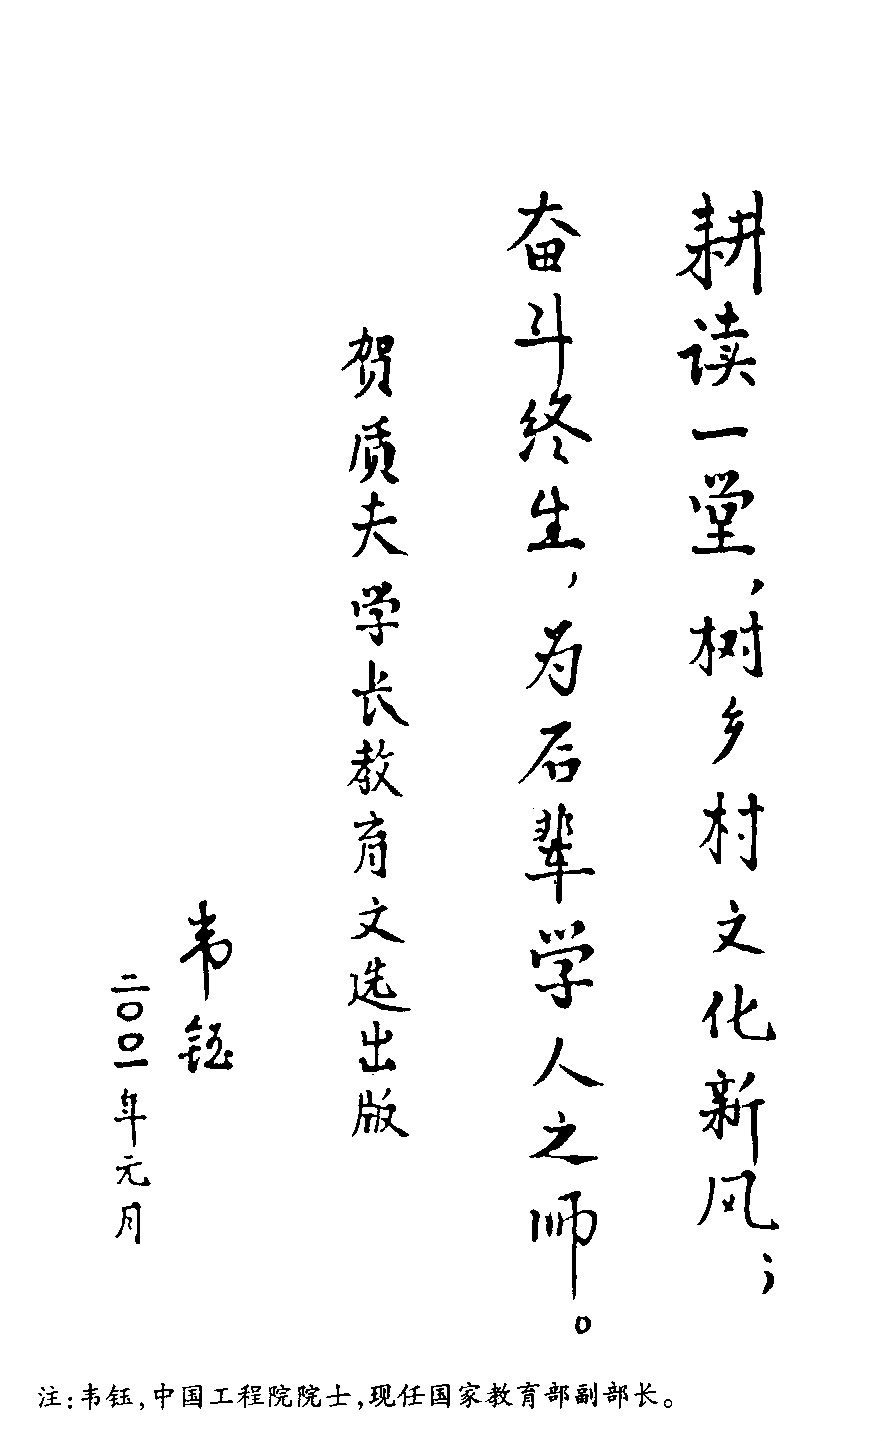 耕读一堂,树乡村文化新风;
奋斗终生,为后辈学人之师。
贺质夫学长教育文选出版
韦钰
二〇〇一年元月
注:韦钰,中国工程院院士,现任国家教育部副部长。